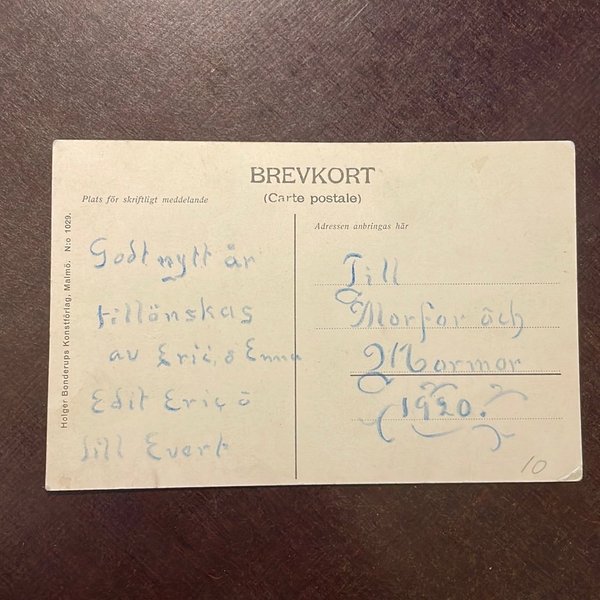 BREVKORT
(Carte postale)
Plats för skriftligt meddelande
Adressen anbringas här
Holger Bonderups Konstförlag, Malmö. N:o 1029.
Godt nytt år
tillönskas
av Eric, o Enna
Edit Eric, o
till Evert
Till
Morfar och
Mormor
1920.
10